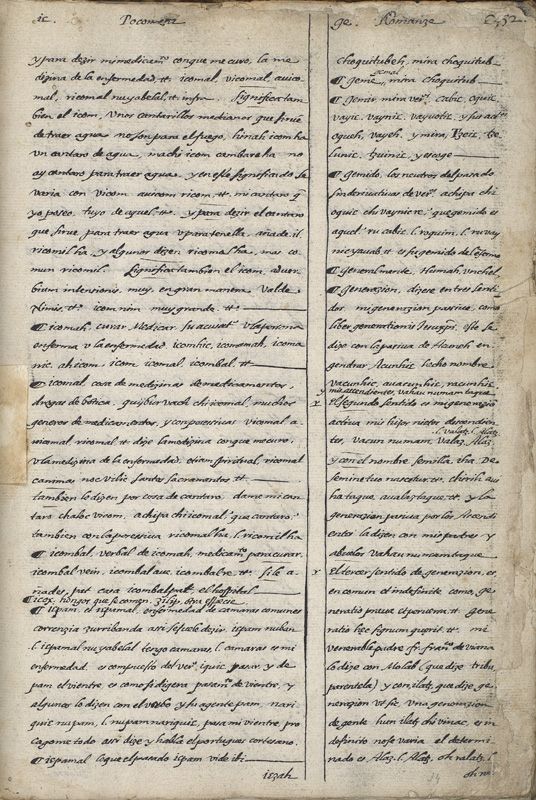 ic. Pocomchi
y para dezir mi medicam.º con que me curo, la me
dizina de la enfermedad, tt. icomal, vicomal, auico
mal, ricomal nu yabelal, tt. infra. Significa tam
bien el icom, Vnos cantarillos medianos que sirue
de traer agua no son para el fuego, hinah icom ha
vn cantaro de agua, machi icom cambareha no
ay cantaro para traer agua y en este significado se
varia con vicom auicom ricom, tt. mi cantaro q̃
yo poseo, tuyo de aquel, tt.ª y para dezir el cantaro
que sirue para traer agua v para tenella, añade, il
ricomil ha, y algunos dizen ricomal ha, mas co
mun ricomil. Significa tambien el icom, aduer
bium intensionis, muy, en gran manera Valde
Nimis, tt.ª icom nim muy grande. tt.ª
¶ icomah, curar Medicar. su acusat.º v la persona
enferma v la enfermedad, icomhic, icomamah, icoma
nic, ah icom, icom icomal, icombal. tt
¶ icomal cosa de medizinas o medicamentos,
drogas de botica, quizbor vach chi icomal, muchos
generos de medicamentos, y con poseciuas vicomal a
uicomal ricomal tt dize la medizina con que me curo.
v la medizina de la enfermedad, etiam spiritual, ricomal
canma, noc vilic santos sacramentos. tt
tambien lo dizen por cosa de cantaro. dame mi can
taro chaloc vncom. achipa chi icomal, que cantaro.
tambien con la posessiua ricomal ha, l. ricomil ha
¶ icombal, verbal de icomah, medicam.º para curar.
icombal vein, icombal aue, icombalre tt.ª si le a
ñades, pat casa icombal pat, el hospital
¶ icox, hongos que se comen. Zilip, otra espezie
¶ icpam, et icpamal, enfermedad de camaras comunes
correnzia zurribanda assi se suele dezir, icpam nuban
l. icpamal nu yabelal tengo camaras l. camaras es mi
enfermedad. es compuesto del ver.º iquic pasar, y de
pam el vientre, es como si dixera pasam.º de vientre, y
algunos lo dizen con el verbo y su agente pam, nari
quic nu pam, l. nu pam nariquic, pasa mi vientre pro
cagome todo assi dize y habla el portugues cortesano.
¶ icpamal lo que el pasado icpam vide ibi
iczah

ge. Romanze
choquitubeh, mira choquitub
¶ gemir, mira choquitub
¶ gemir, mira ver.º, cabic, oquic,
vayic, vaynic, vayuotic, y sus ad.os
oqueh, vayeh, y mira, tzeic, tze
lunic, tzuinic, y escoge
¶ gemido, los neutros del pasado
sin derivatiuas de ver.º achipa chi
oquic chi vaynic re, que gemido es
aquel ru cabic, l. roquim, l. ru vay
nic yauab, tt es su gemido del enfermo
¶ Generalmente, Humah, vnchel
¶ generazion, dizese en tres senti
dos mi generazion pasiue, como
liber generationis Iesu xpi. este se
dize con la pasiua de Haneh en
gendrar Acunhic hecho nombre
vacunhic, auacunhic, racunhic
y mis ascendientes, vahau numam tuque
El segundo sentido es mi generazion
actiua mis hijos nietos descendien
tes, vacun numam, valaz, Alaz,
y con el nombre semilla, iha De
semine tuo nascetur, tt. chirih au
iha taque, aualaz taque tt.ª y la
generazion pasiua por los Ascendi
entes la dizen con mis padres y
abuelos vahau numam taque
El terzer sentido de generazion, es
en comun et indefinite como, ge
neratio praua et peruersa. tt gene
ratio haec signum querit. tt. mi
venerable padre fr. fran.co de viana
lo dize con Molab (que dize tribu
parentela) y con, ilatz, que dize, ge
nerazion vt sic Vna generazion
de gente hun ilatz chi vinac, es in
definito no se varia el determi
nado es, Alaz. l. Alatz. oh ralatz. l.
oh ra